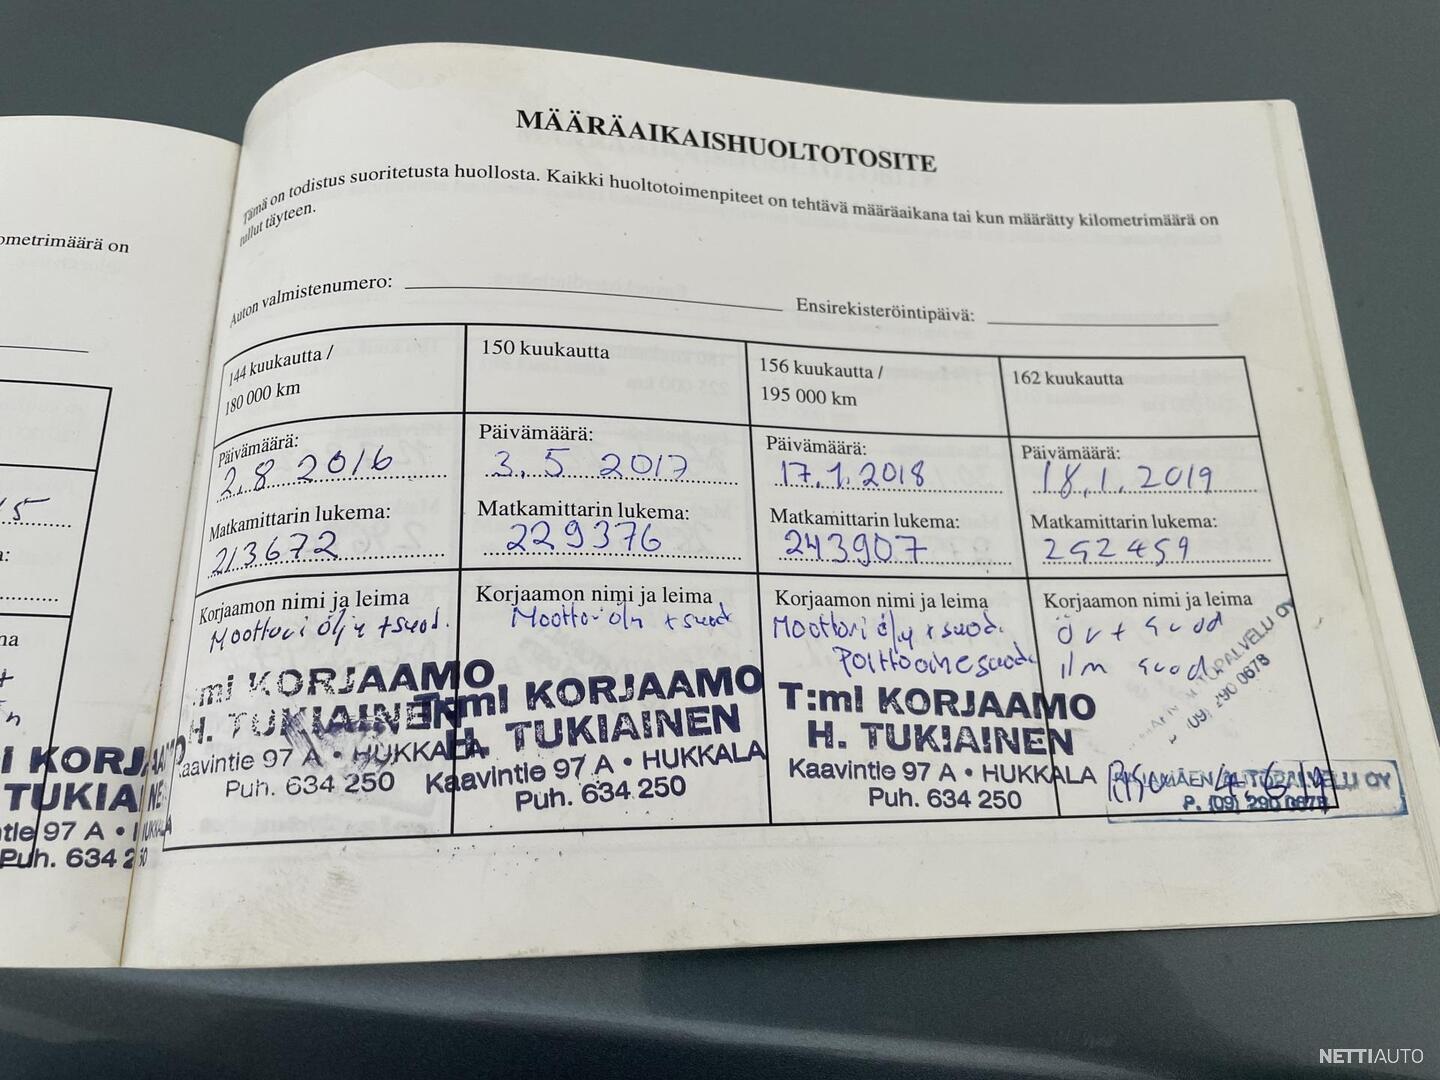 MÄÄRÄAIKAISHUOLTOTOSITE
Tämä on todistus suoritetusta huollosta. Kaikki huoltotoimenpiteet on tehtävä määräaikana tai kun määrätty kilometrimäärä on
tullut täyteen.
ometrimäärä on
Auton valmistenumero:
Ensirekisteröintipäivä:
144 kuukautta /
180 000 km
Päivämäärä:
2.8 2016
Matkamittarin lukema:
213672
Korjaamon nimi ja leima
Moottori öljy + suod.
T:ml KORJAAMO
H. TUKIAINEN
Kaavintie 97 A • HUKKALA
Puh. 634 250
150 kuukautta
Päivämäärä:
3. 5 2017
Matkamittarin lukema:
229376
Korjaamon nimi ja leima
Moottoriöljy + suod
T:ml KORJAAMO
H. TUKIAINEN
Kaavintie 97 A • HUKKALA
Puh. 634 250
156 kuukautta /
195 000 km
Päivämäärä:
17.1.2018
Matkamittarin lukema:
243907
Korjaamon nimi ja leima
Moottori öljy + suod.
Polttoainesuod.
T:ml KORJAAMO
H. TUKIAINEN
Kaavintie 97 A • HUKKALA
Puh. 634 250
162 kuukautta
Päivämäärä:
18.1.2019
Matkamittarin lukema:
252459
Korjaamon nimi ja leima
Öv + suod
ilm suod
AUTOPALVELU OY
(09) 290 0678
AUTOPALVELU OY
P. (09) 290 0678
I KORJAAMO
TUKIAINEN
ntie 97 A • HUKKALA
Puh. 634 250
NETTIAUTO